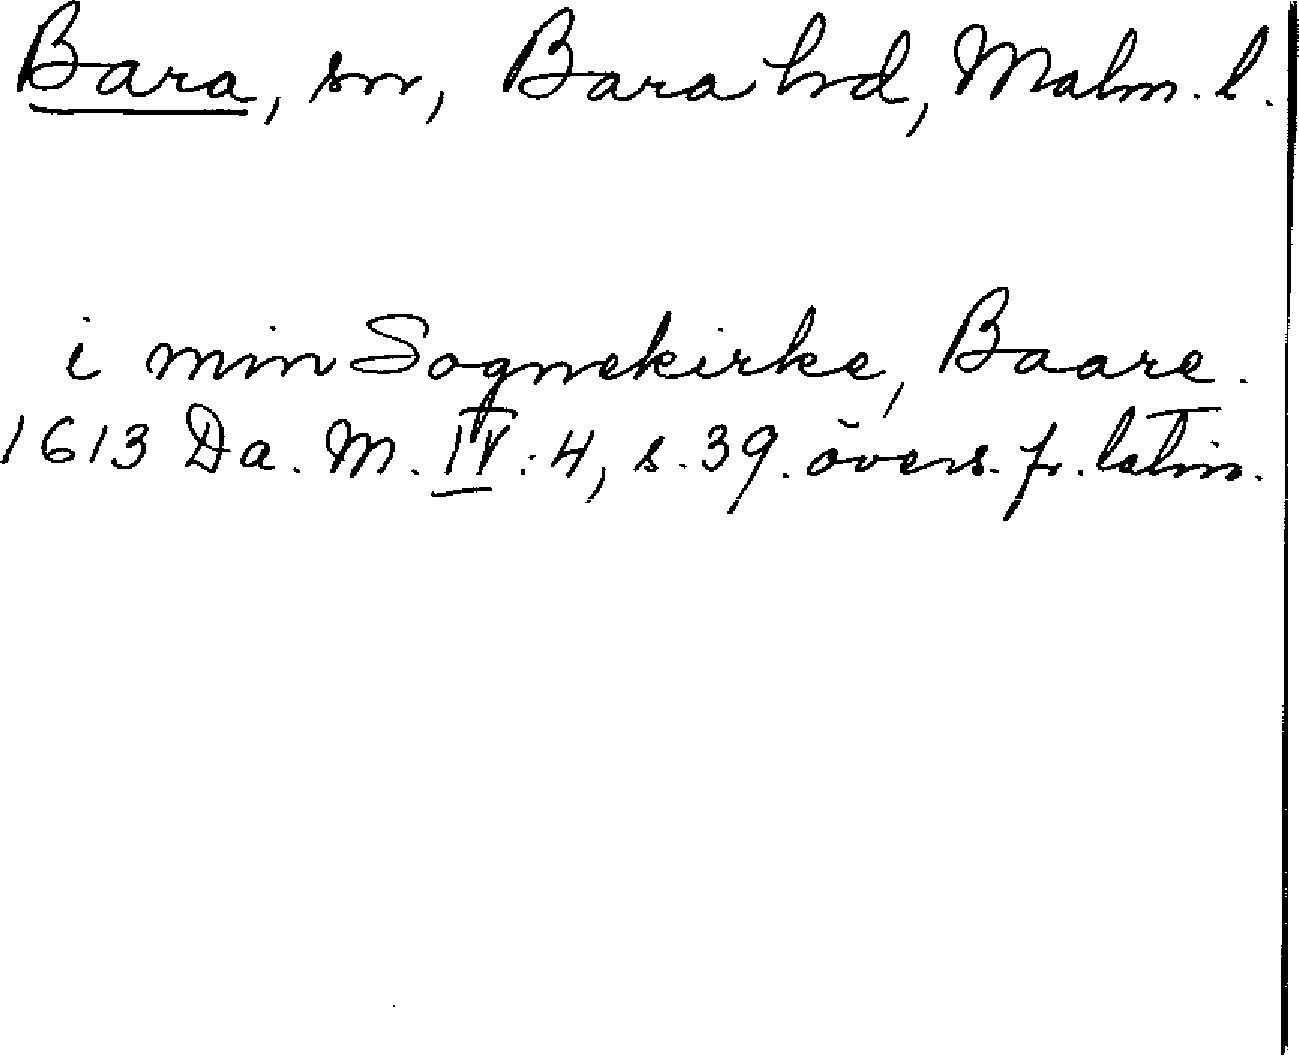 Bara, sn, Bara hd, Malm. l.
i min Sognekirke, Baare.
1613 Da. M. IV: 4, s. 39. övers. fr. latin.